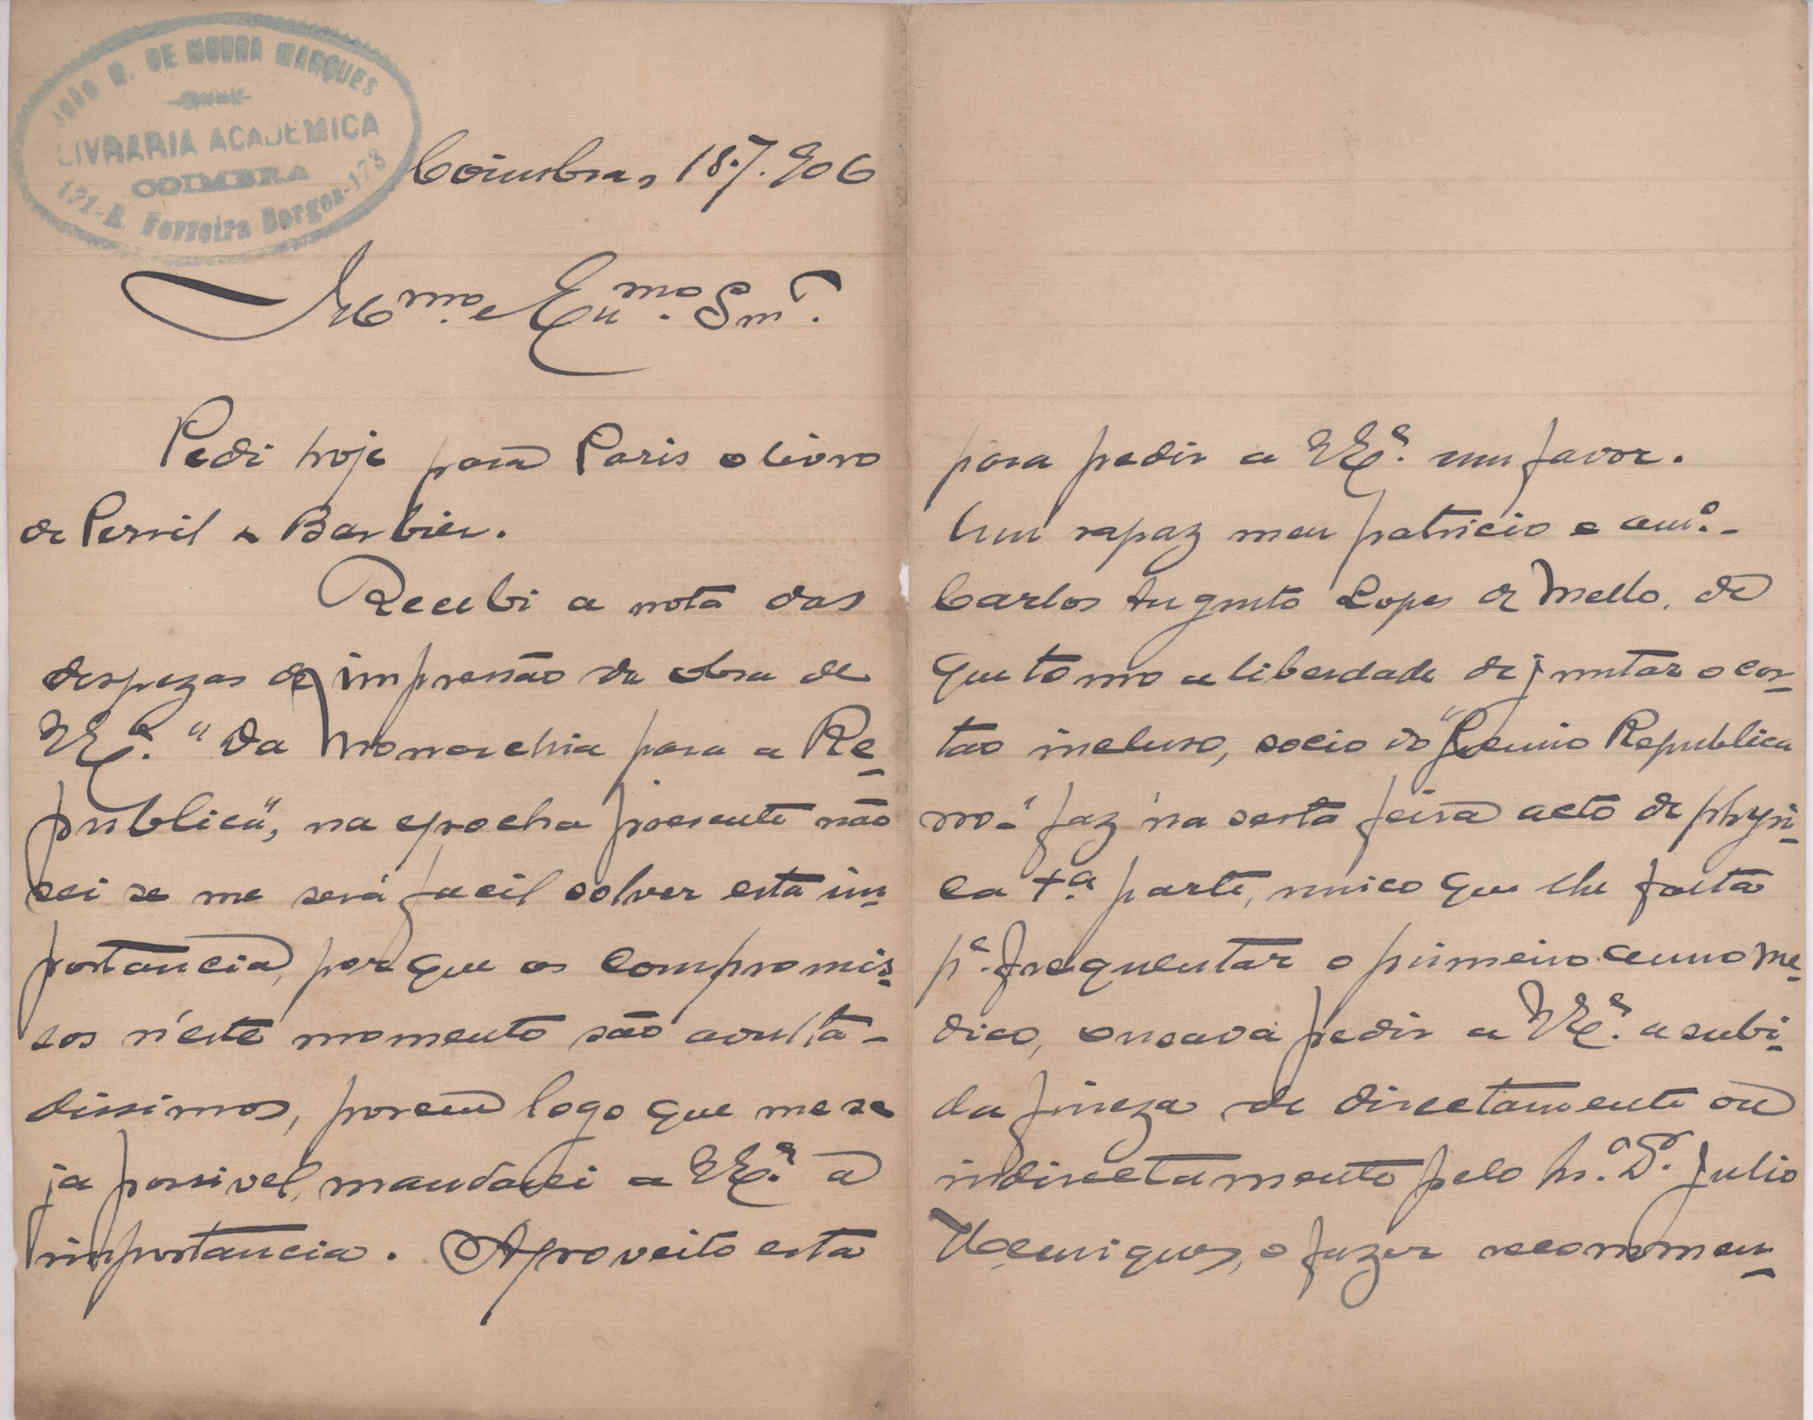 JOÃO R. DE MOURA MARQUES
LIVRARIA ACADEMICA
COIMBRA
171-R. Ferreira Borges-173
Coimbra, 18.7.906
Illmo. e Exmo. Snr.
Pedi hoje para Paris o livro
de Persil e Barbier.
Recebi a nota das
despezas de impressão da obra de
VEª. "Da Monarchia para a Re-
publica", na epocha presente não
sei se me será facil solver esta im-
portancia, porque os compromis-
sos n'este momento são avulta-
dissimos, porem logo que me se
ja possivel, mandarei a VEª. a
importancia. Aproveito esta
para pedir a VEª. um favor.
Um rapaz meu patricio e amº.
Carlos Augusto Lopes de Mello, de
que tomo a liberdade de juntar o car-
tão incluso, socio do "Gremio Republica
no" faz na sexta feira acto de physi-
ca 1ª. parte, unico que lhe falta
pª. frequentar o primeiro anno me-
dico, ousava pedir a VEª. a subi-
da fineza de directamente ou
indirectamente pelo Dr. Julio
Henriques, o fazer recommen-